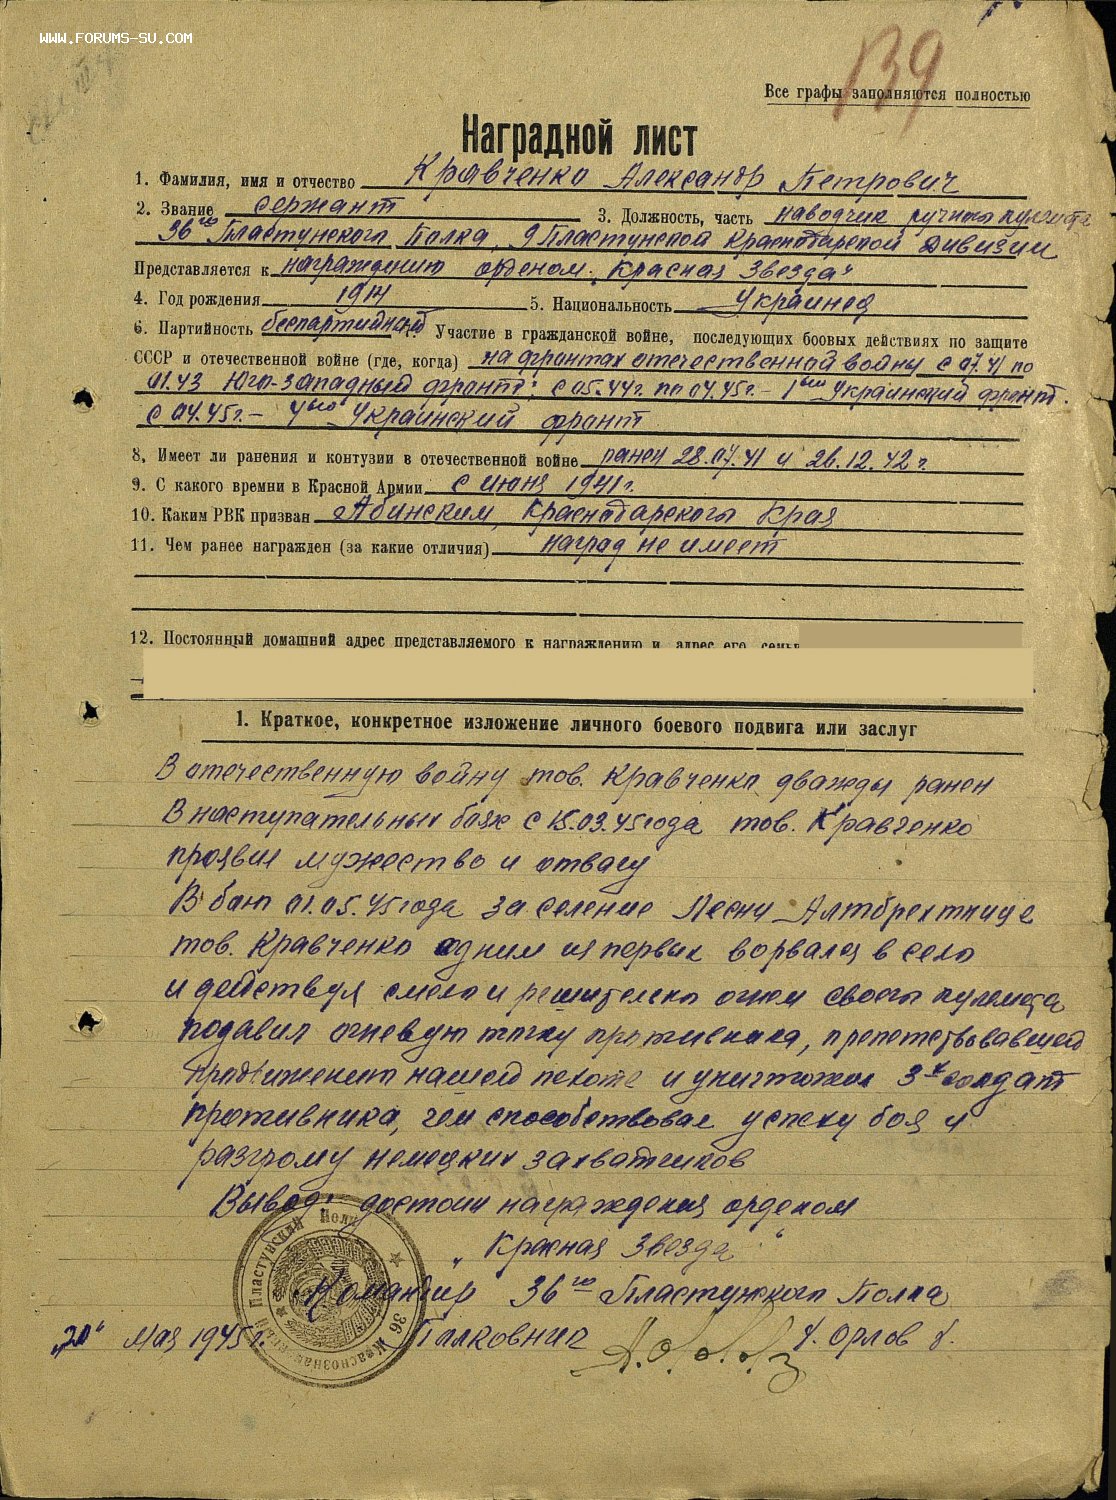 WWW.FORUMS-SU.COM
139
Все графы заполняются полностью
Наградной лист
1. Фамилия, имя и отчество Кравченко Александр Петрович
2. Звание сержант 3. Должность, часть наводчик ручного пулемета
36го Пластунского Полка, 9 Пластунской Краснодарской Дивизии
Представляется к награждению орденом „Красная Звезда"
4. Год рождения 1914 5. Национальность Украинец
6. Партийность беспартийный Участие в гражданской войне, последующих боевых действиях по защите
СССР и отечественной войне (где, когда) на фронтах отечественной войны с 07.41 по
01.43 Юго-Западный фронт; с 05.44г. по 04.45г. – 1ый Украинский фронт.
с 04.45г. – 4ый Украинский фронт
8, Имеет ли ранения и контузии в отечественной войне ранен 28.07.41 и 26.12.42г.
9. С какого времни в Красной Армии с июня 1941г.
10. Каким РВК призван Абинским, Краснодарского Края
11. Чем ранее награжден (за какие отличия) наград не имеет
12. Постоянный домашний адрес представляемого к награждению и адрес его семьи
1. Краткое, конкретное изложение личного боевого подвига или заслуг
В отечественную войну тов. Кравченко дважды ранен
В наступательных боях с 15.03.45 года тов. Кравченко
проявил мужество и отвагу
В бою 01.05.45 года за селение
тов. Кравченко одним из первых ворвался в село
и действуя смело и решительно огнем своего пулемета
подавил огневую точку противника, препятствовавшей
продвижению нашей пехоте и уничтожил 3х солдат
противника, чем способствовал успеху боя и
разгрому немецких захватчиков
Вывод: достоин награждения орденом
„Красная Звезда"
Командир 36го Пластунского Полка
„20" Мая 1945г. Полковник Орлов
36 Краснознаменный Пластунский Полк